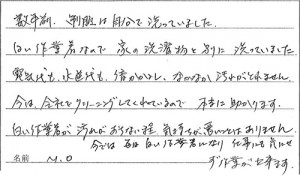 数年前、制服は自分で洗っていました。
白い作業着なので 家の洗濯物と別に洗っていました。
電気代も、水道代も、倍かかるし、なかなか汚れがとれません。
今は、会社でクリーニングしてくれているので 本当に助かります。
白い作業着が 汚れがおちない程、気持ちが悪いことはありません。
今では 毎日白い作業着になり 仕事にも気にせ
ず作業が出来ます。
名前 M.O